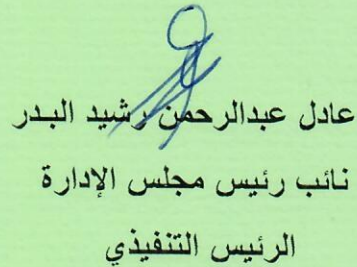 عادل عبدالرحمن رشيد البدر
نائب رئيس مجلس الإدارة
الرئيس التنفيذي